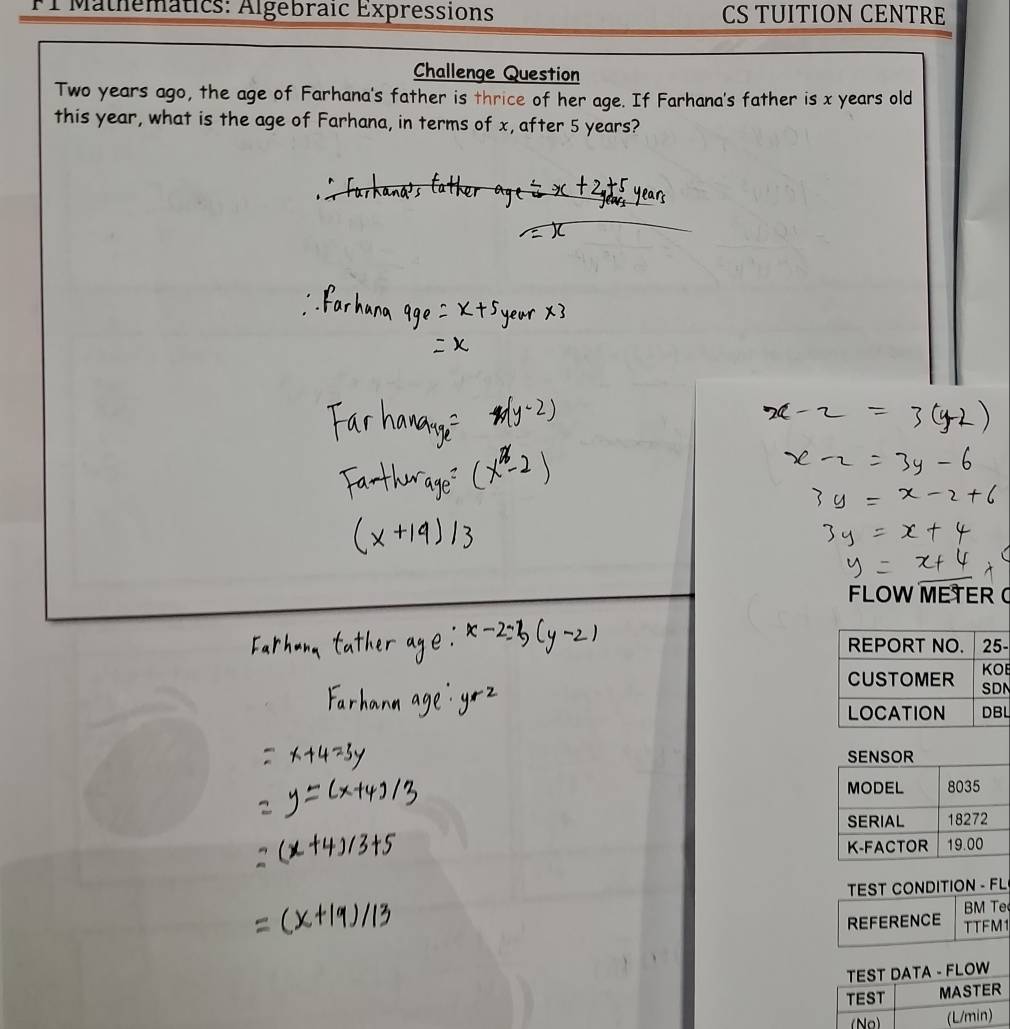 F1 Mathematics: Algebraic Expressions
CS TUITION CENTRE
Challenge Question
Two years ago, the age of Farhana's father is thrice of her age. If Farhana's father is x years old
this year, what is the age of Farhana, in terms of x, after 5 years?
∴ Farhana's father age = x + 2 years + 5 years
= x
∴ Farhana age = x + 5 year x 3
= x
Farhana age = (y-2)
Farther age = (x-2)
(x+19)/3
x - 2 = 3(y-2)
x - 2 = 3y - 6
3y = x - 2 + 6
3y = x + 4
y = x + 4
Farhana father age: x-2=3(y-2)
Farhana age: y-2
= x+4=3y
= y=(x+4)/3
= (x+4)/3+5
= (x+19)/13
FLOW METER
REPORT NO. 25-
CUSTOMER
SDN
LOCATION DBL
SENSOR
MODEL 8035
SERIAL 18272
K-FACTOR 19.00
TEST CONDITION - FL
REFERENCE BM Te
TTFM1
TEST DATA - FLOW
TEST MASTER
(No) (L/min)